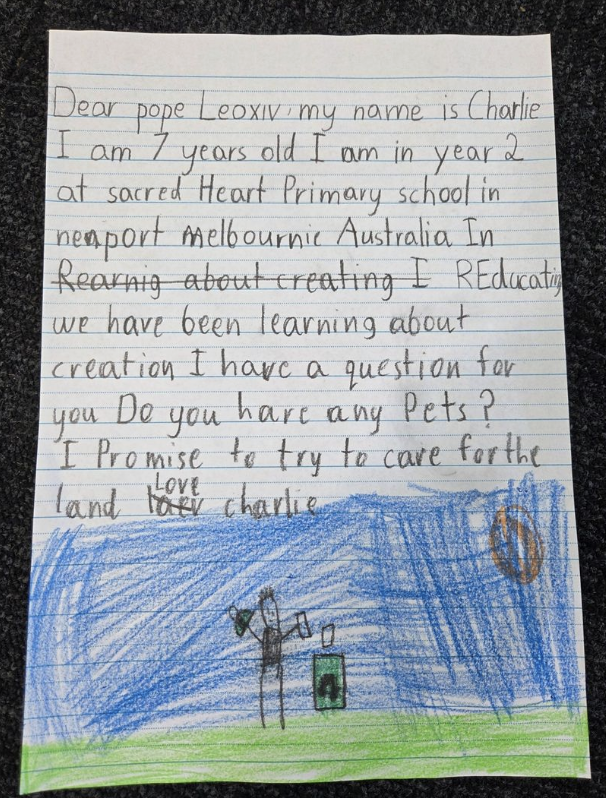 Dear pope Leoxiv, my name is Charlie
I am 7 years old I am in year 2
at sacred Heart Primary school in
newport Melbournie Australia In
Rearnig about creating I REducation
we have been learning about
creation I have a question for
you Do you have any Pets?
I Promise to try to care for the
land Love charlie